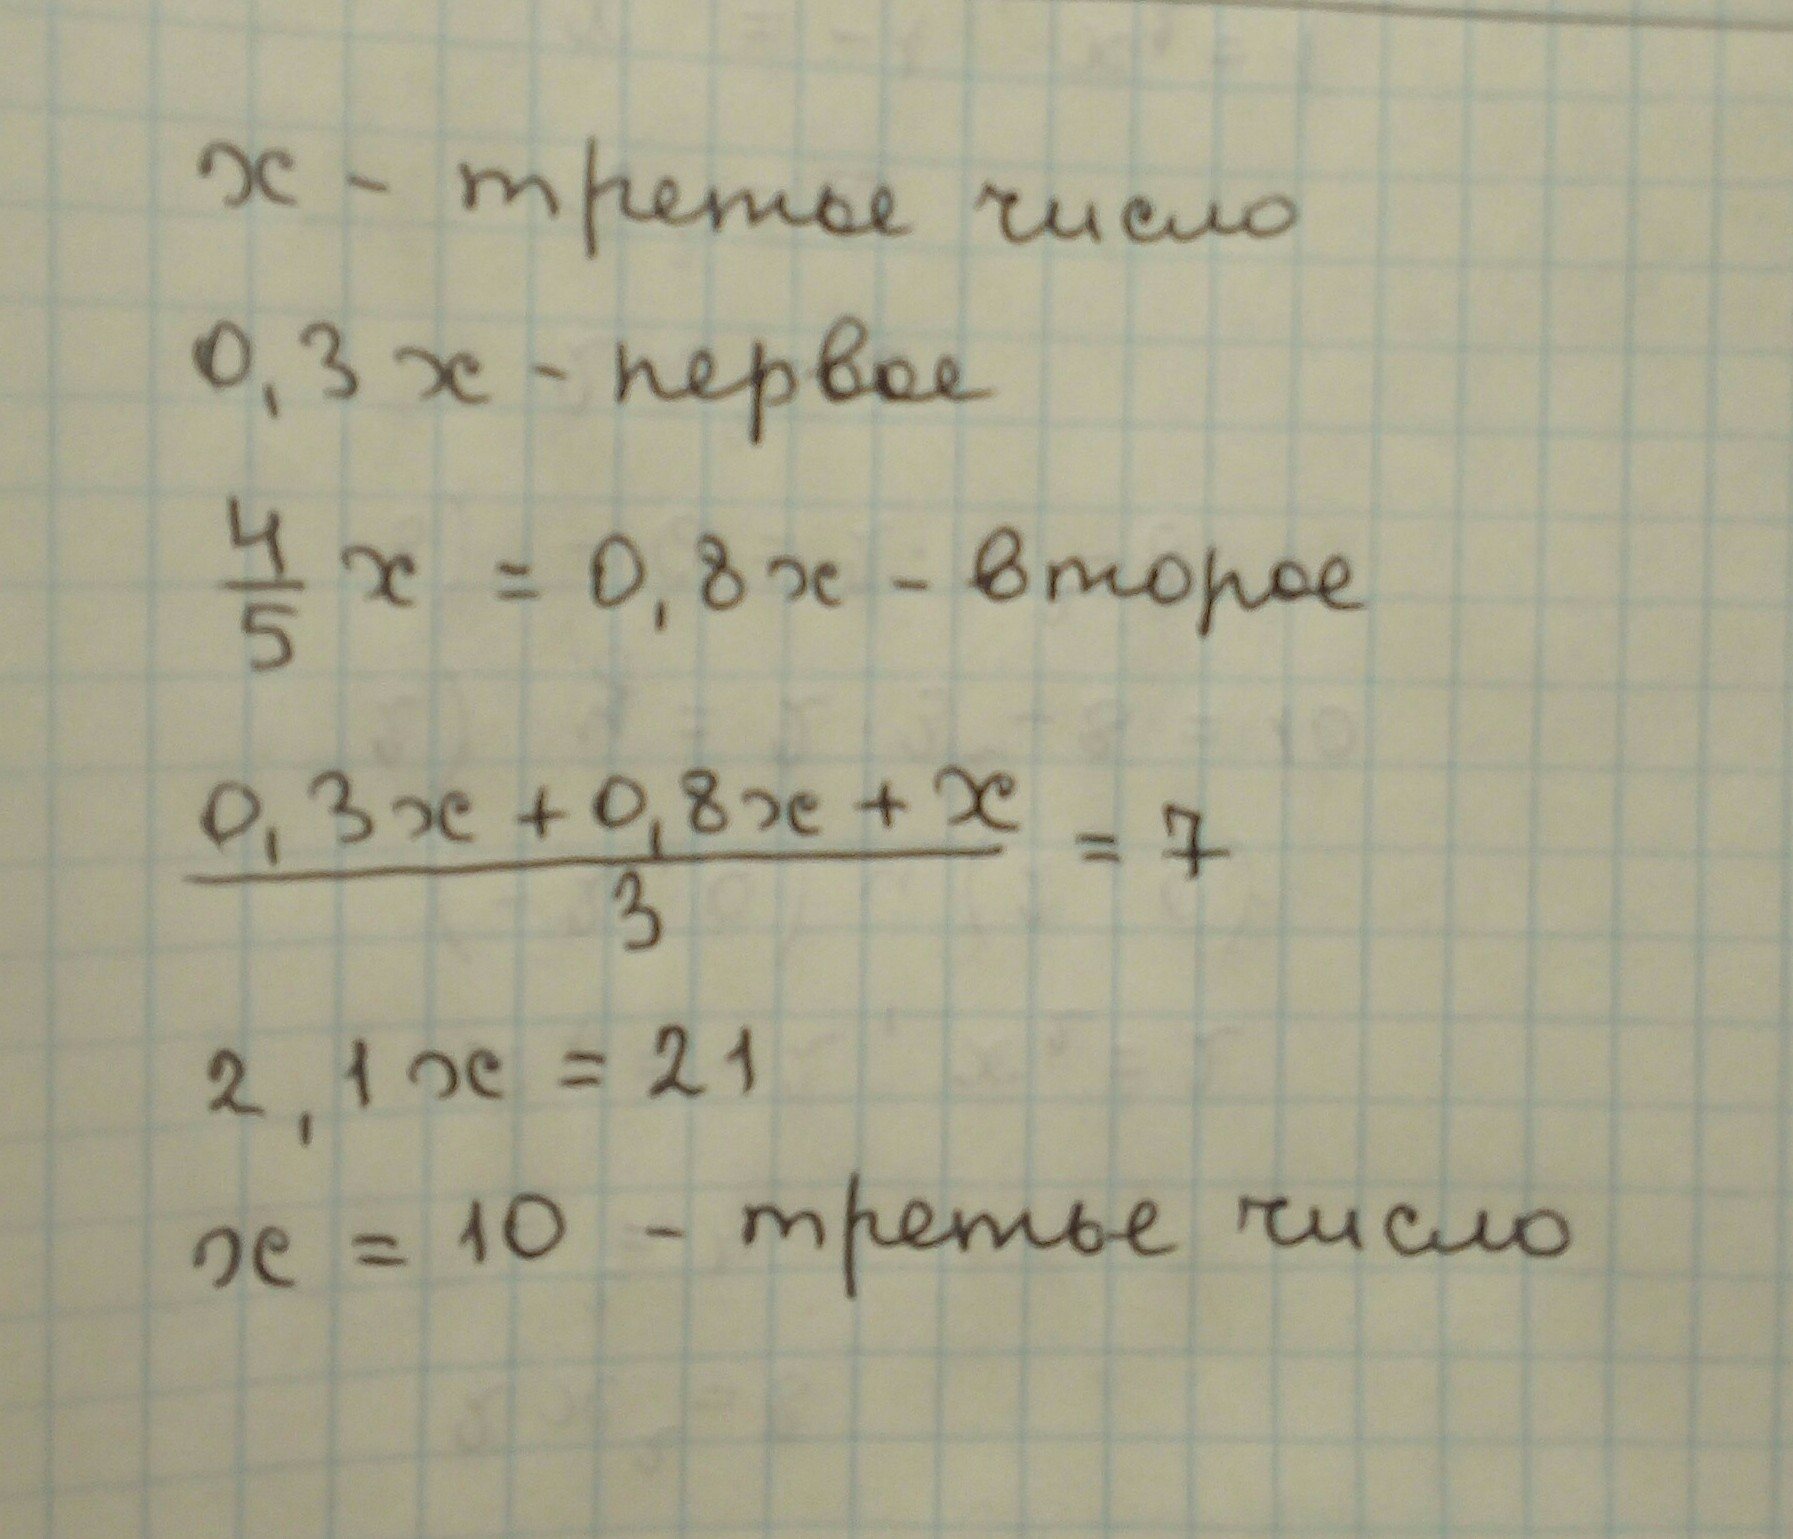 x - третье число
0,3x - первое
4/5 x = 0,8x - второе
(0,3x + 0,8x + x)/3 = 7
2,1x = 21
x = 10 - третье число